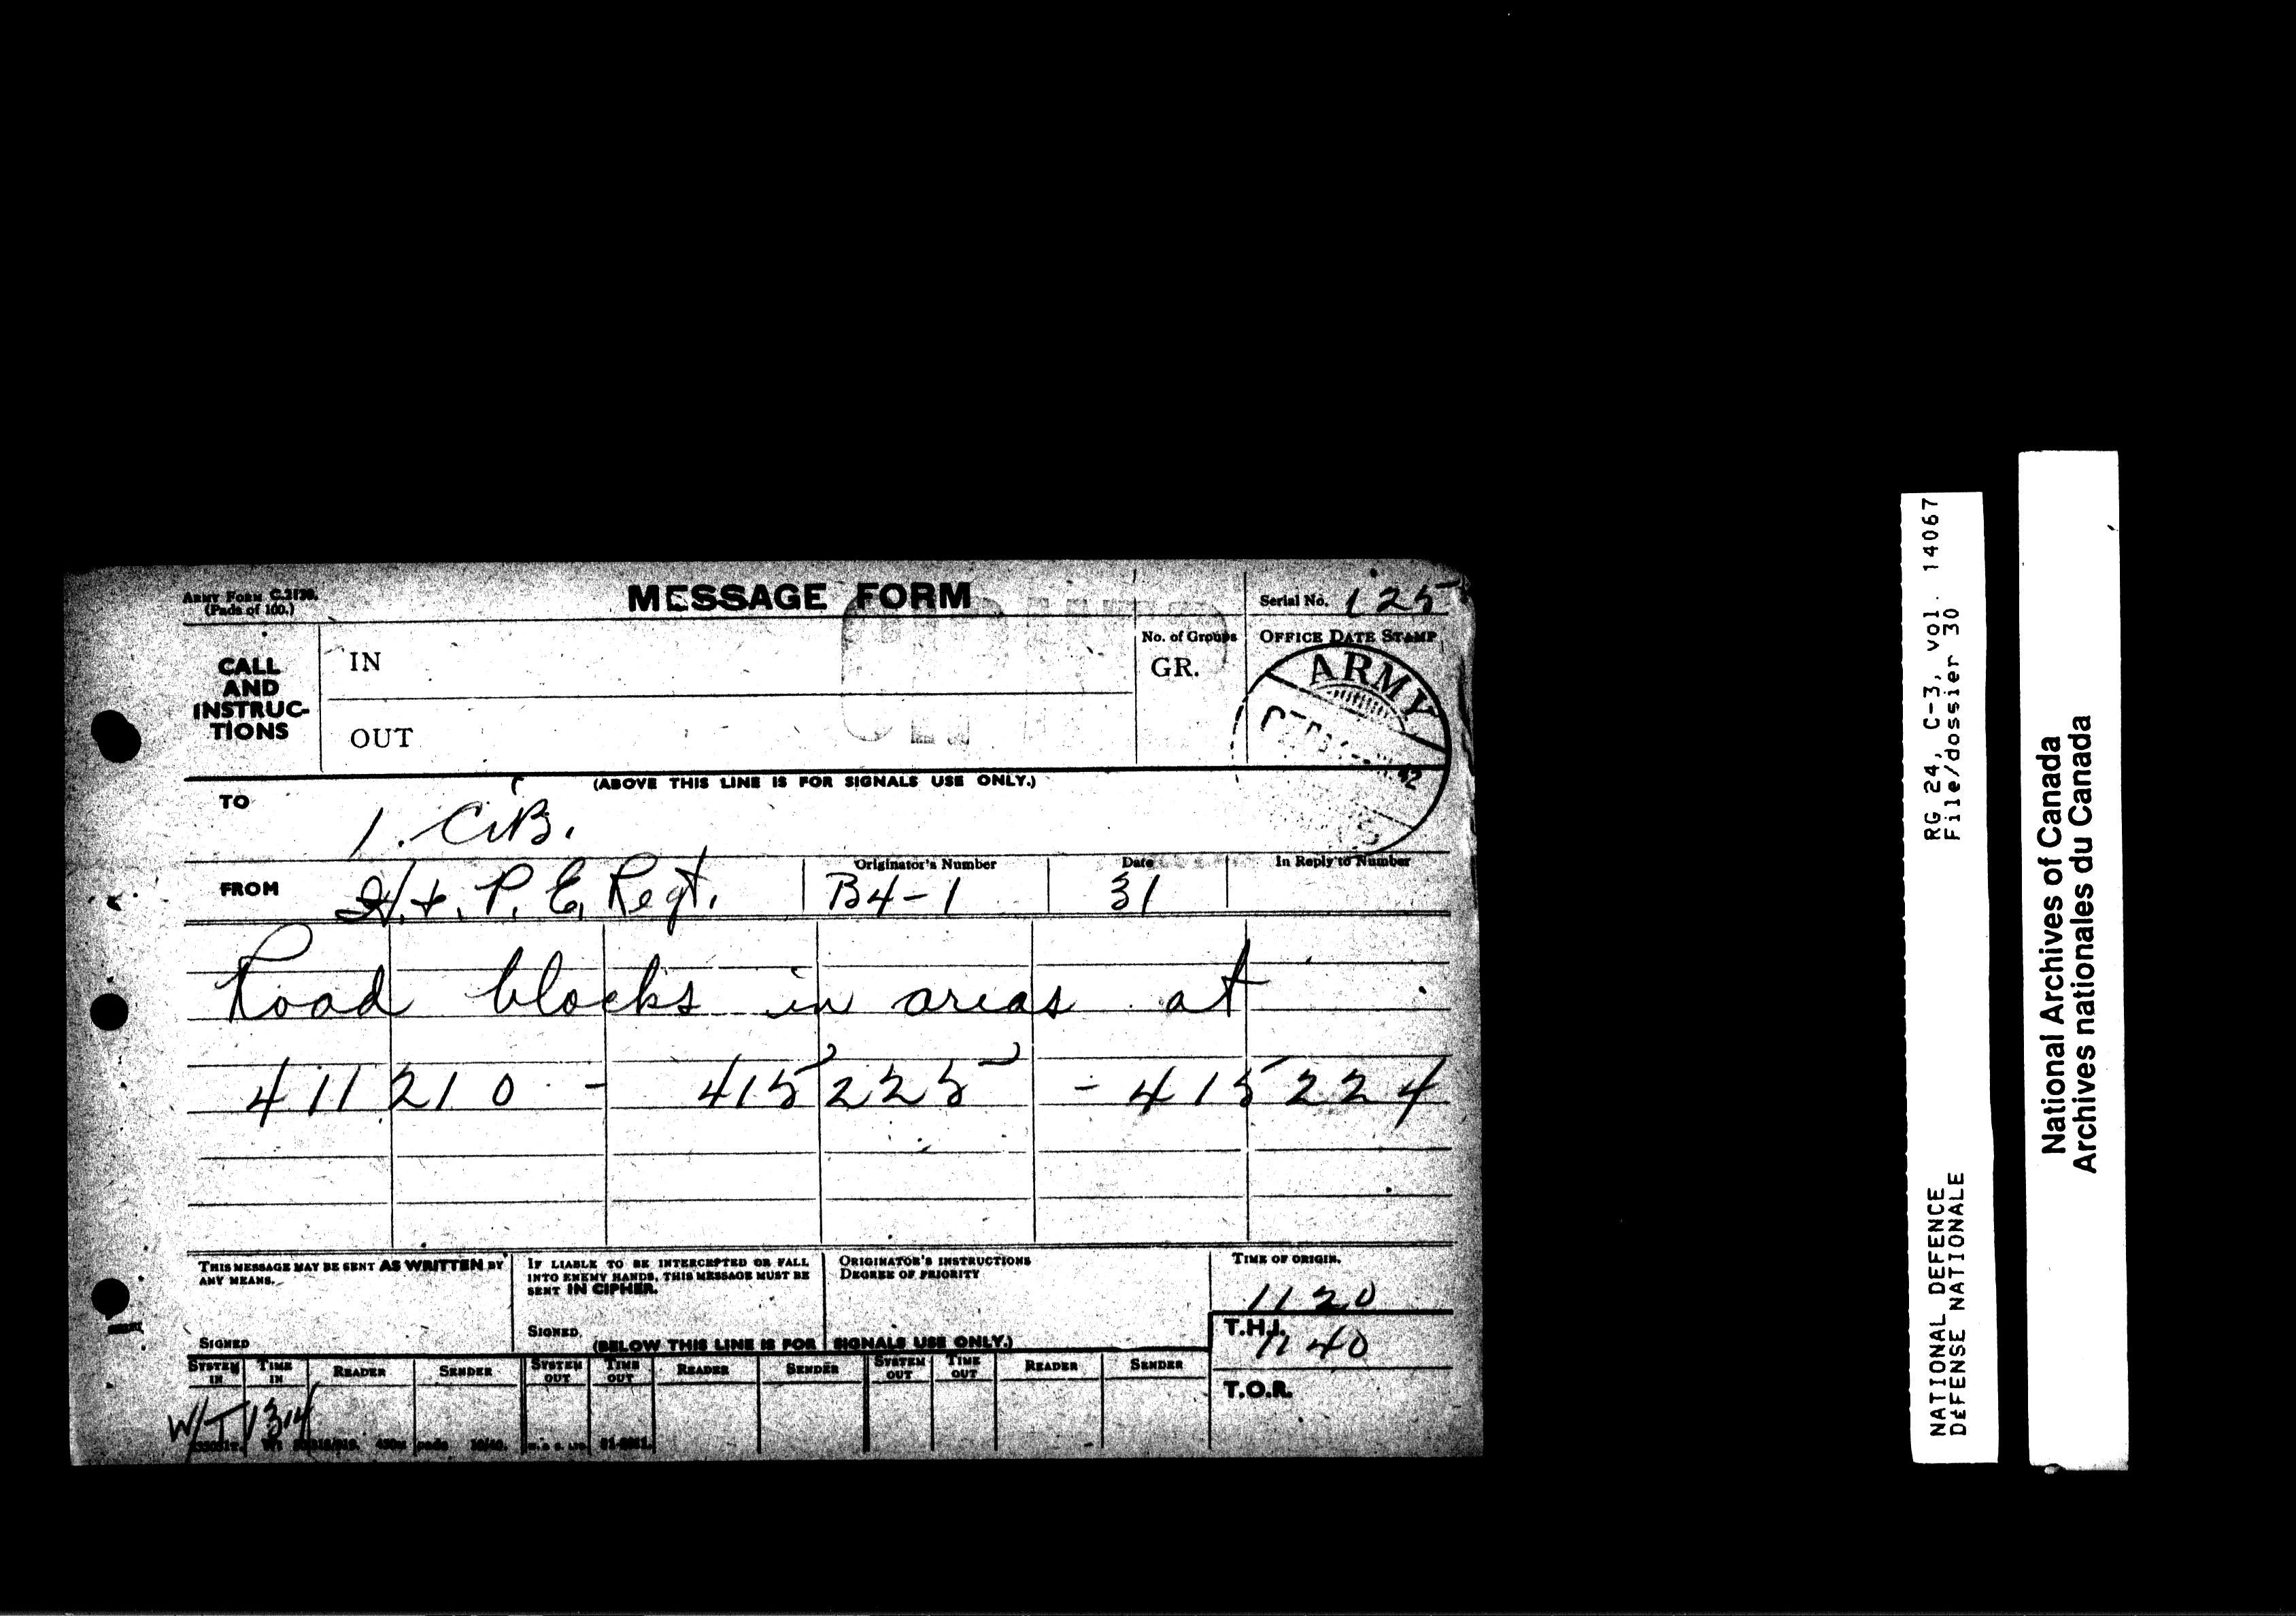 ARMY FORM C.2128.
(Pads of 100.)
MESSAGE FORM
Serial No. 125
CALL
AND
INSTRUC-
TIONS
IN
OUT
No. of Groups
GR.
OFFICE DATE STAMP
ARMY
(ABOVE THIS LINE IS FOR SIGNALS USE ONLY.)
TO
1. CIB.
FROM
H. + P. E. Regt.
Originator's Number
B4-1
Date
31
In Reply to Number
Road blocks in areas at
411210 - 415225 - 415224
THIS MESSAGE MAY BE SENT AS WRITTEN BY
ANY MEANS.
SIGNED
IF LIABLE TO BE INTERCEPTED OR FALL
INTO ENEMY HANDS, THIS MESSAGE MUST BE
SENT IN CIPHER.
SIGNED
ORIGINATOR'S INSTRUCTIONS
DEGREE OF PRIORITY
TIME OF ORIGIN.
1120
T.H.I.
1140
T.O.R.
(BELOW THIS LINE IS FOR SIGNALS USE ONLY.)
SYSTEM IN TIME IN READER SENDER SYSTEM OUT TIME OUT READER SENDER SYSTEM OUT TIME OUT READER SENDER
W/T 1314
NATIONAL DEFENCE RG 24, C-3, vol. 14067
DÉFENSE NATIONALE File/dossier 30
National Archives of Canada
Archives nationales du Canada